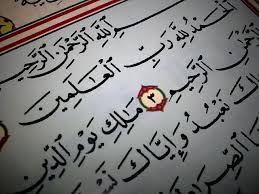 ٱللَّهِ ٱلرَّحْمَٰنِ ٱلرَّحِيمِ
ٱلْحَمْدُ لِلَّهِ رَبِّ ٱلْعَٰلَمِينَ
ٱلرَّحِيمِ ٣ مَٰلِكِ يَوْمِ ٱلدِّينِ
نَعْبُدُ وَإِيَّاكَ